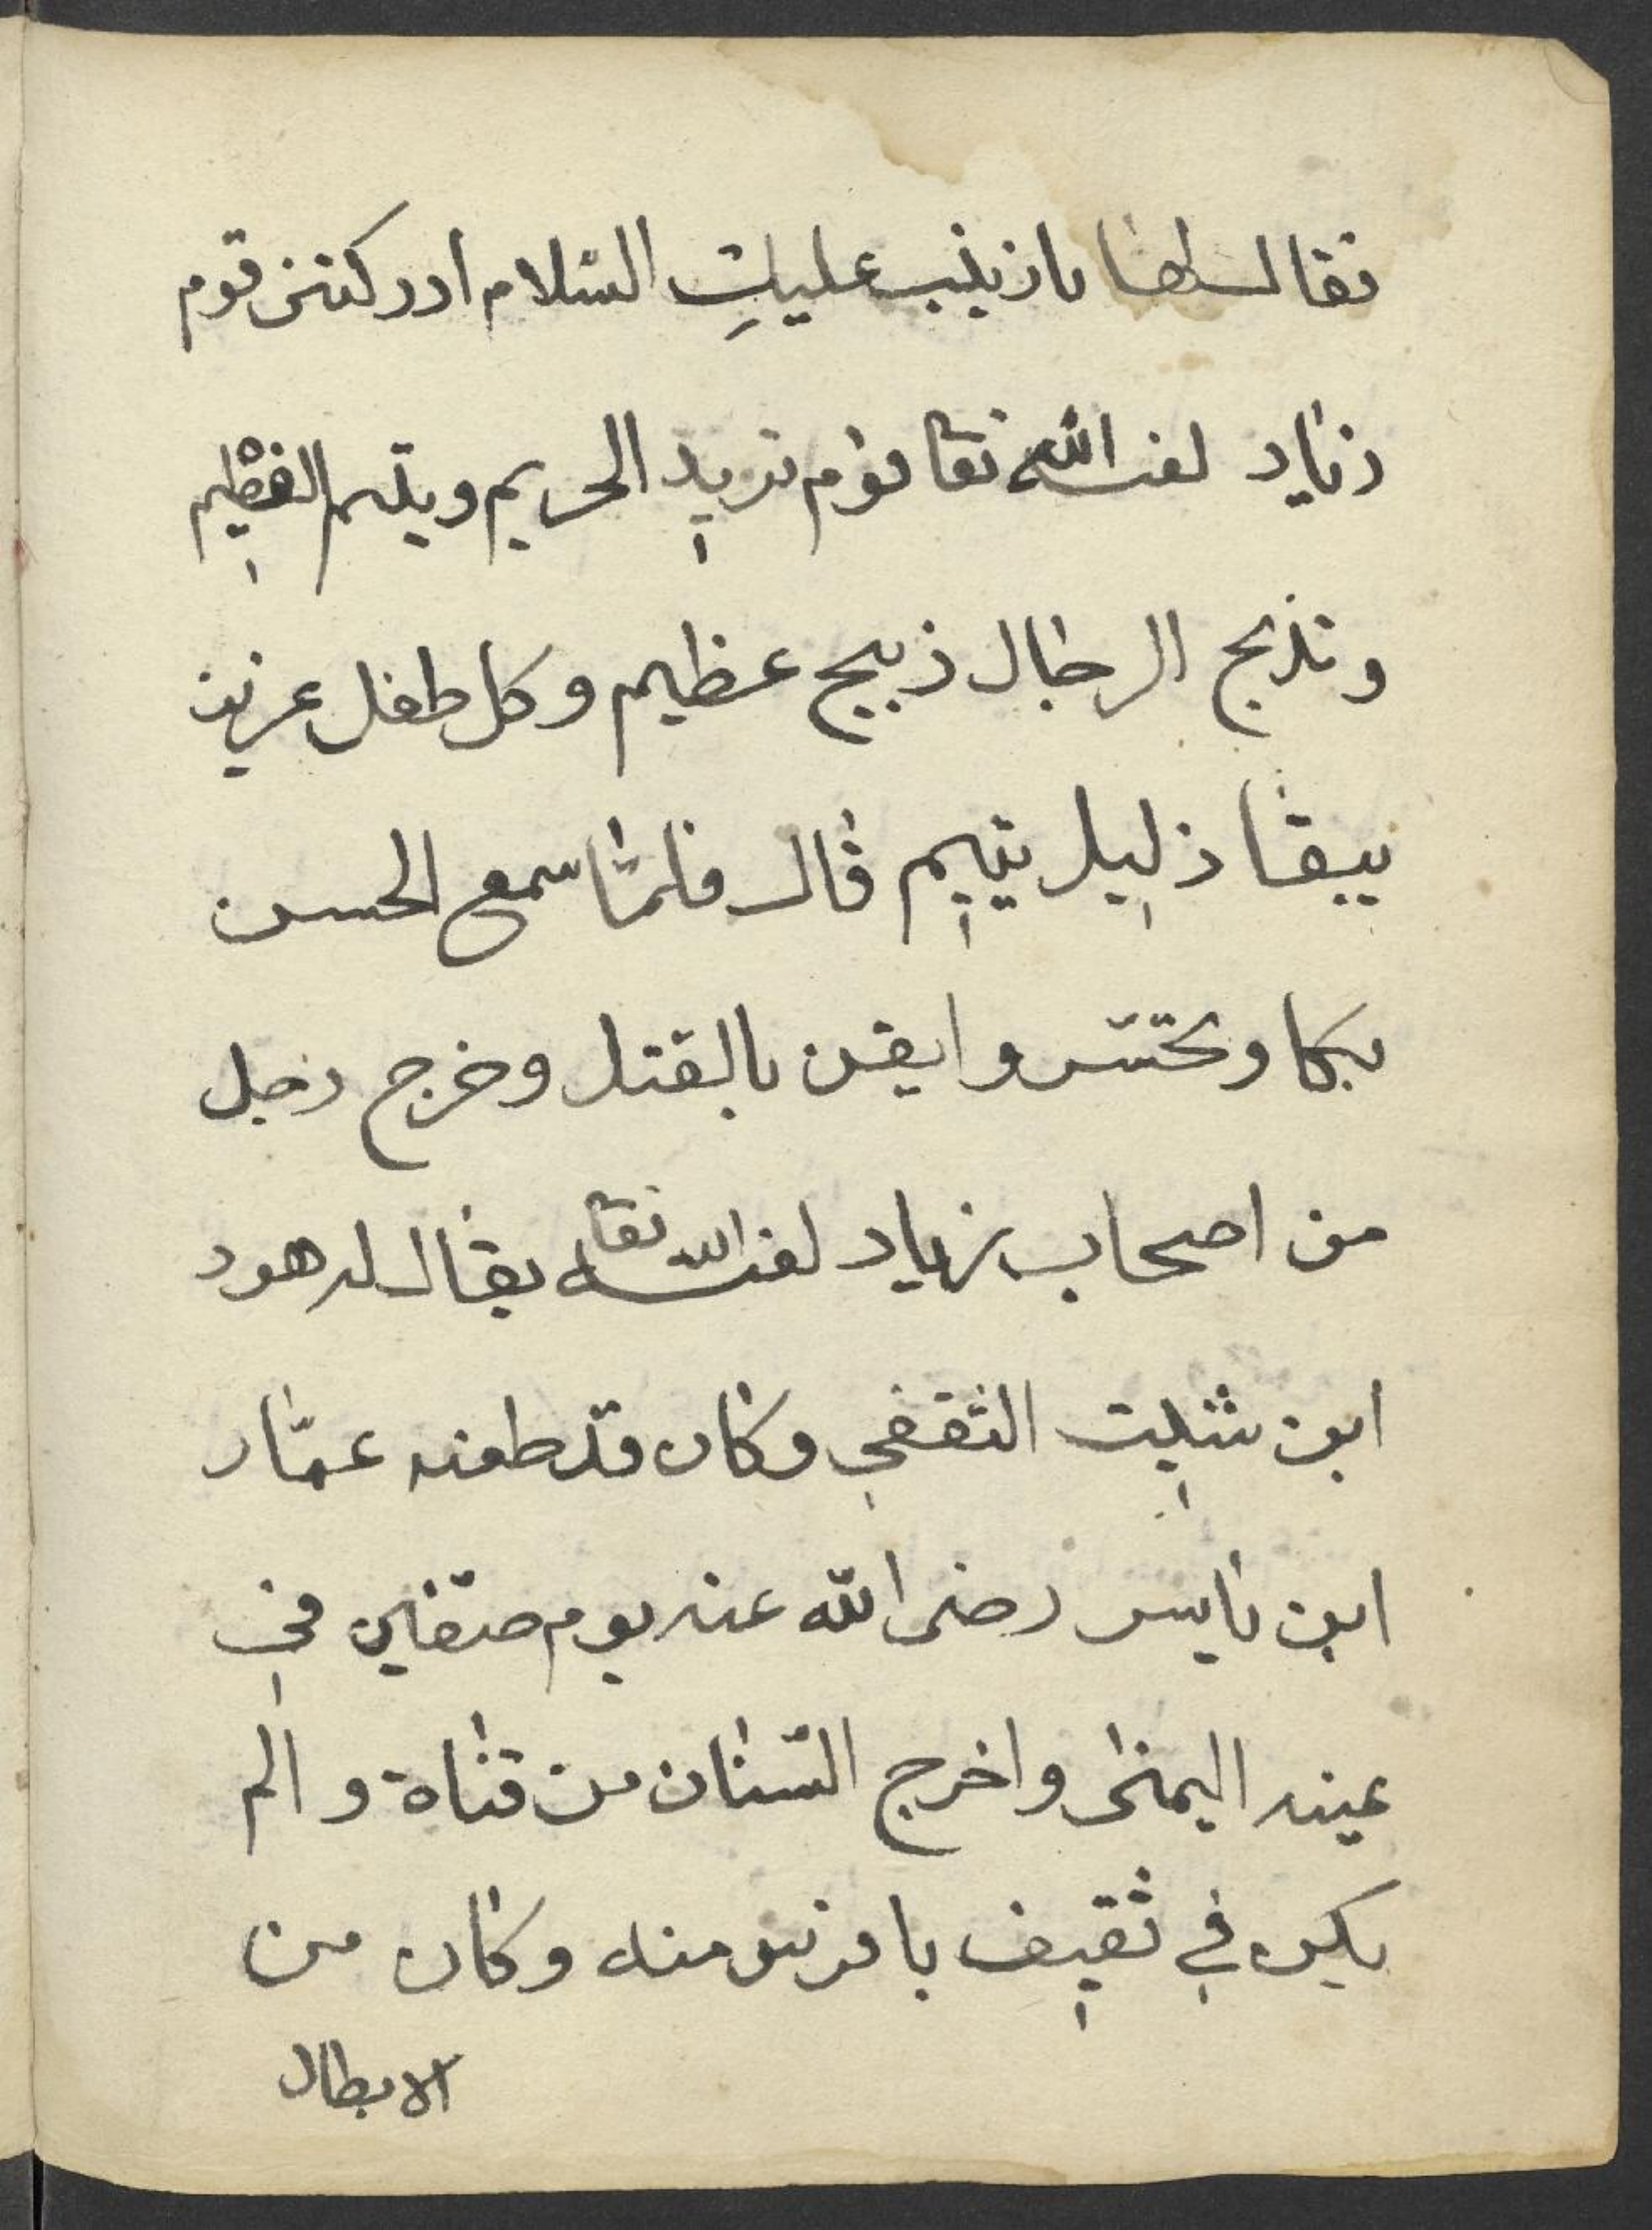 فقال لها يا زينب عليكِ السّلام ادركتنى قوم
زياد لعنه الله تعا قوم تريد الحريم ويتم الفطيم
وتذبح الرجال ذبيح عظيم وكل طفل عزيز
يبقا ذليل يتيم قال فلمّا سمع الحسن
بكا وتحسّر وايقن بالقتل وخرج رجل
من اصحاب زياد لعنه الله تعا يقال له هود
ابن شليت الثقفي وكان قد طعنه عمّار
ابن ياسر رضى الله عنه يوم صفّين في
عينه اليمنى واخرج السّنان من قناة والم
يكن في ثقيف بافرس منه وكان من
الابطال